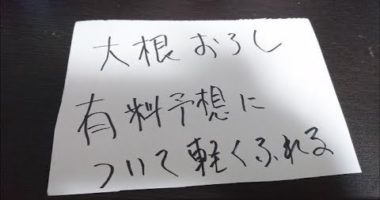 大根おろし
有料予想に
ついて軽くふれる